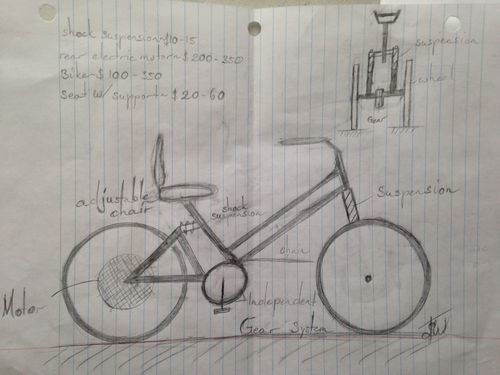 shock suspension ~ $10-15
rear electric motor ~ $200-350
Bike ~ $100-350
seat w/ support ~ $20-60
suspension
wheel
Gear
adjustable
chair
shock
suspension
Suspension
chain
Motor
Independent
Gear System